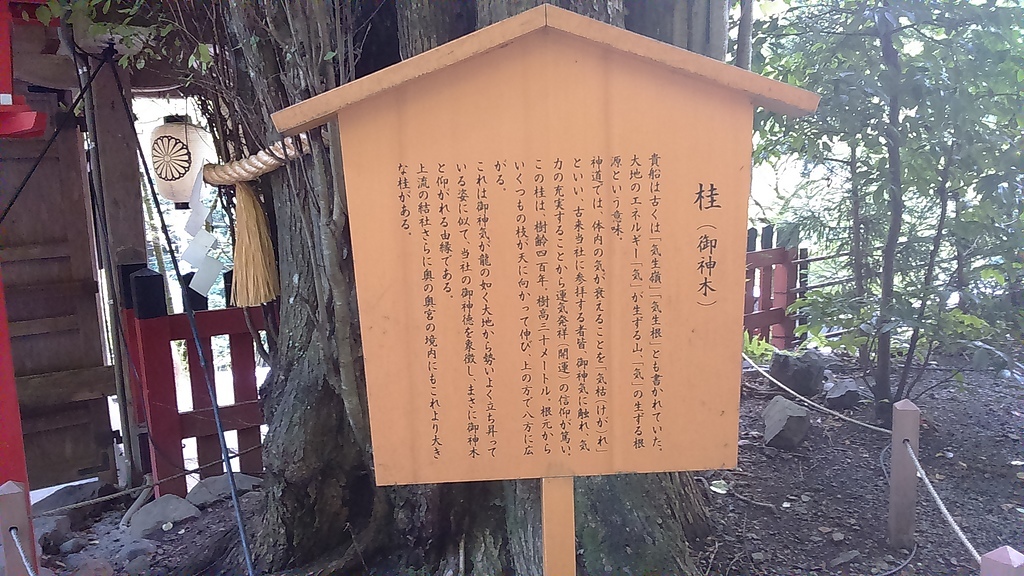 桂（御神木）
貴船は古くは「気生嶺」「気生根」とも書かれていた。
大地のエネルギー「気」が生ずる山、「気」の生ずる根
源という意味。
神道では、体内の気が衰えることを「気枯（けが）れ」
といい、古来当社に参拝する者皆、御神気に触れ、気
力の充実することから運気発祥（開運）の信仰が篤い。
この桂は、樹齢四百年、樹高三十メートル、根元から
いくつもの枝が天に向かって伸び、上の方で八方に広
がる。
これは御神気が龍の如く大地から勢いよく立ち昇って
いる姿に似て、当社の御神徳を象徴し、まさに御神木
と仰がれる由縁である。
上流の結社、さらに奥の奥宮の境内にもこれより大き
な桂がある。